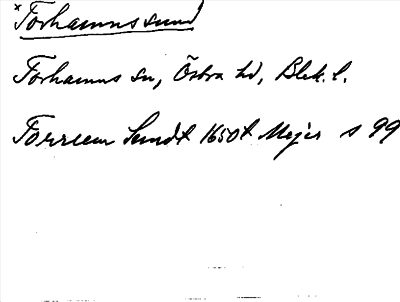 ×Torhamnssund
Torhamns sn, Östra hd, Blek. l.
Torreem Sundt 1650t Mejer s 99